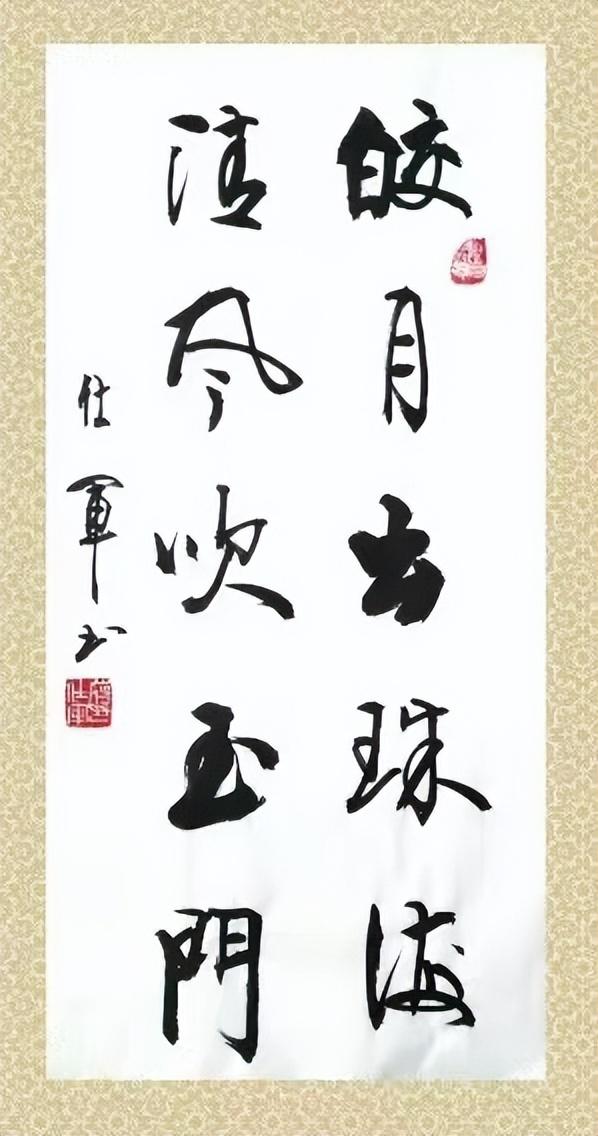 皎月出珠海
清风吹玉門
仕軍书